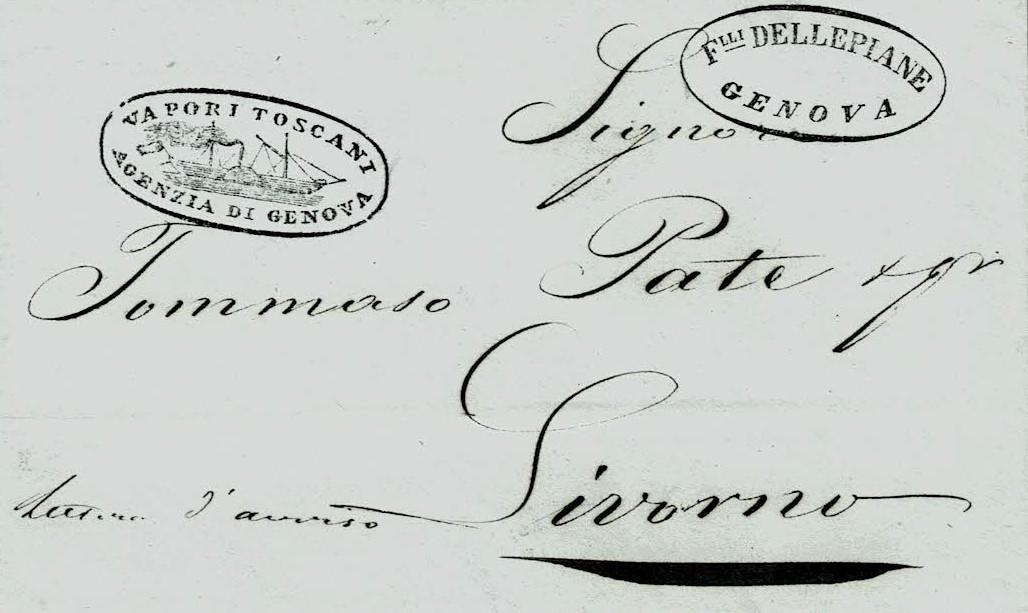 Flli DELLEPIANE
GENOVA
VAPORI TOSCANI
AGENZIA DI GENOVA
Signore
Tommaso Pate
Livorno
Lettera d'avviso